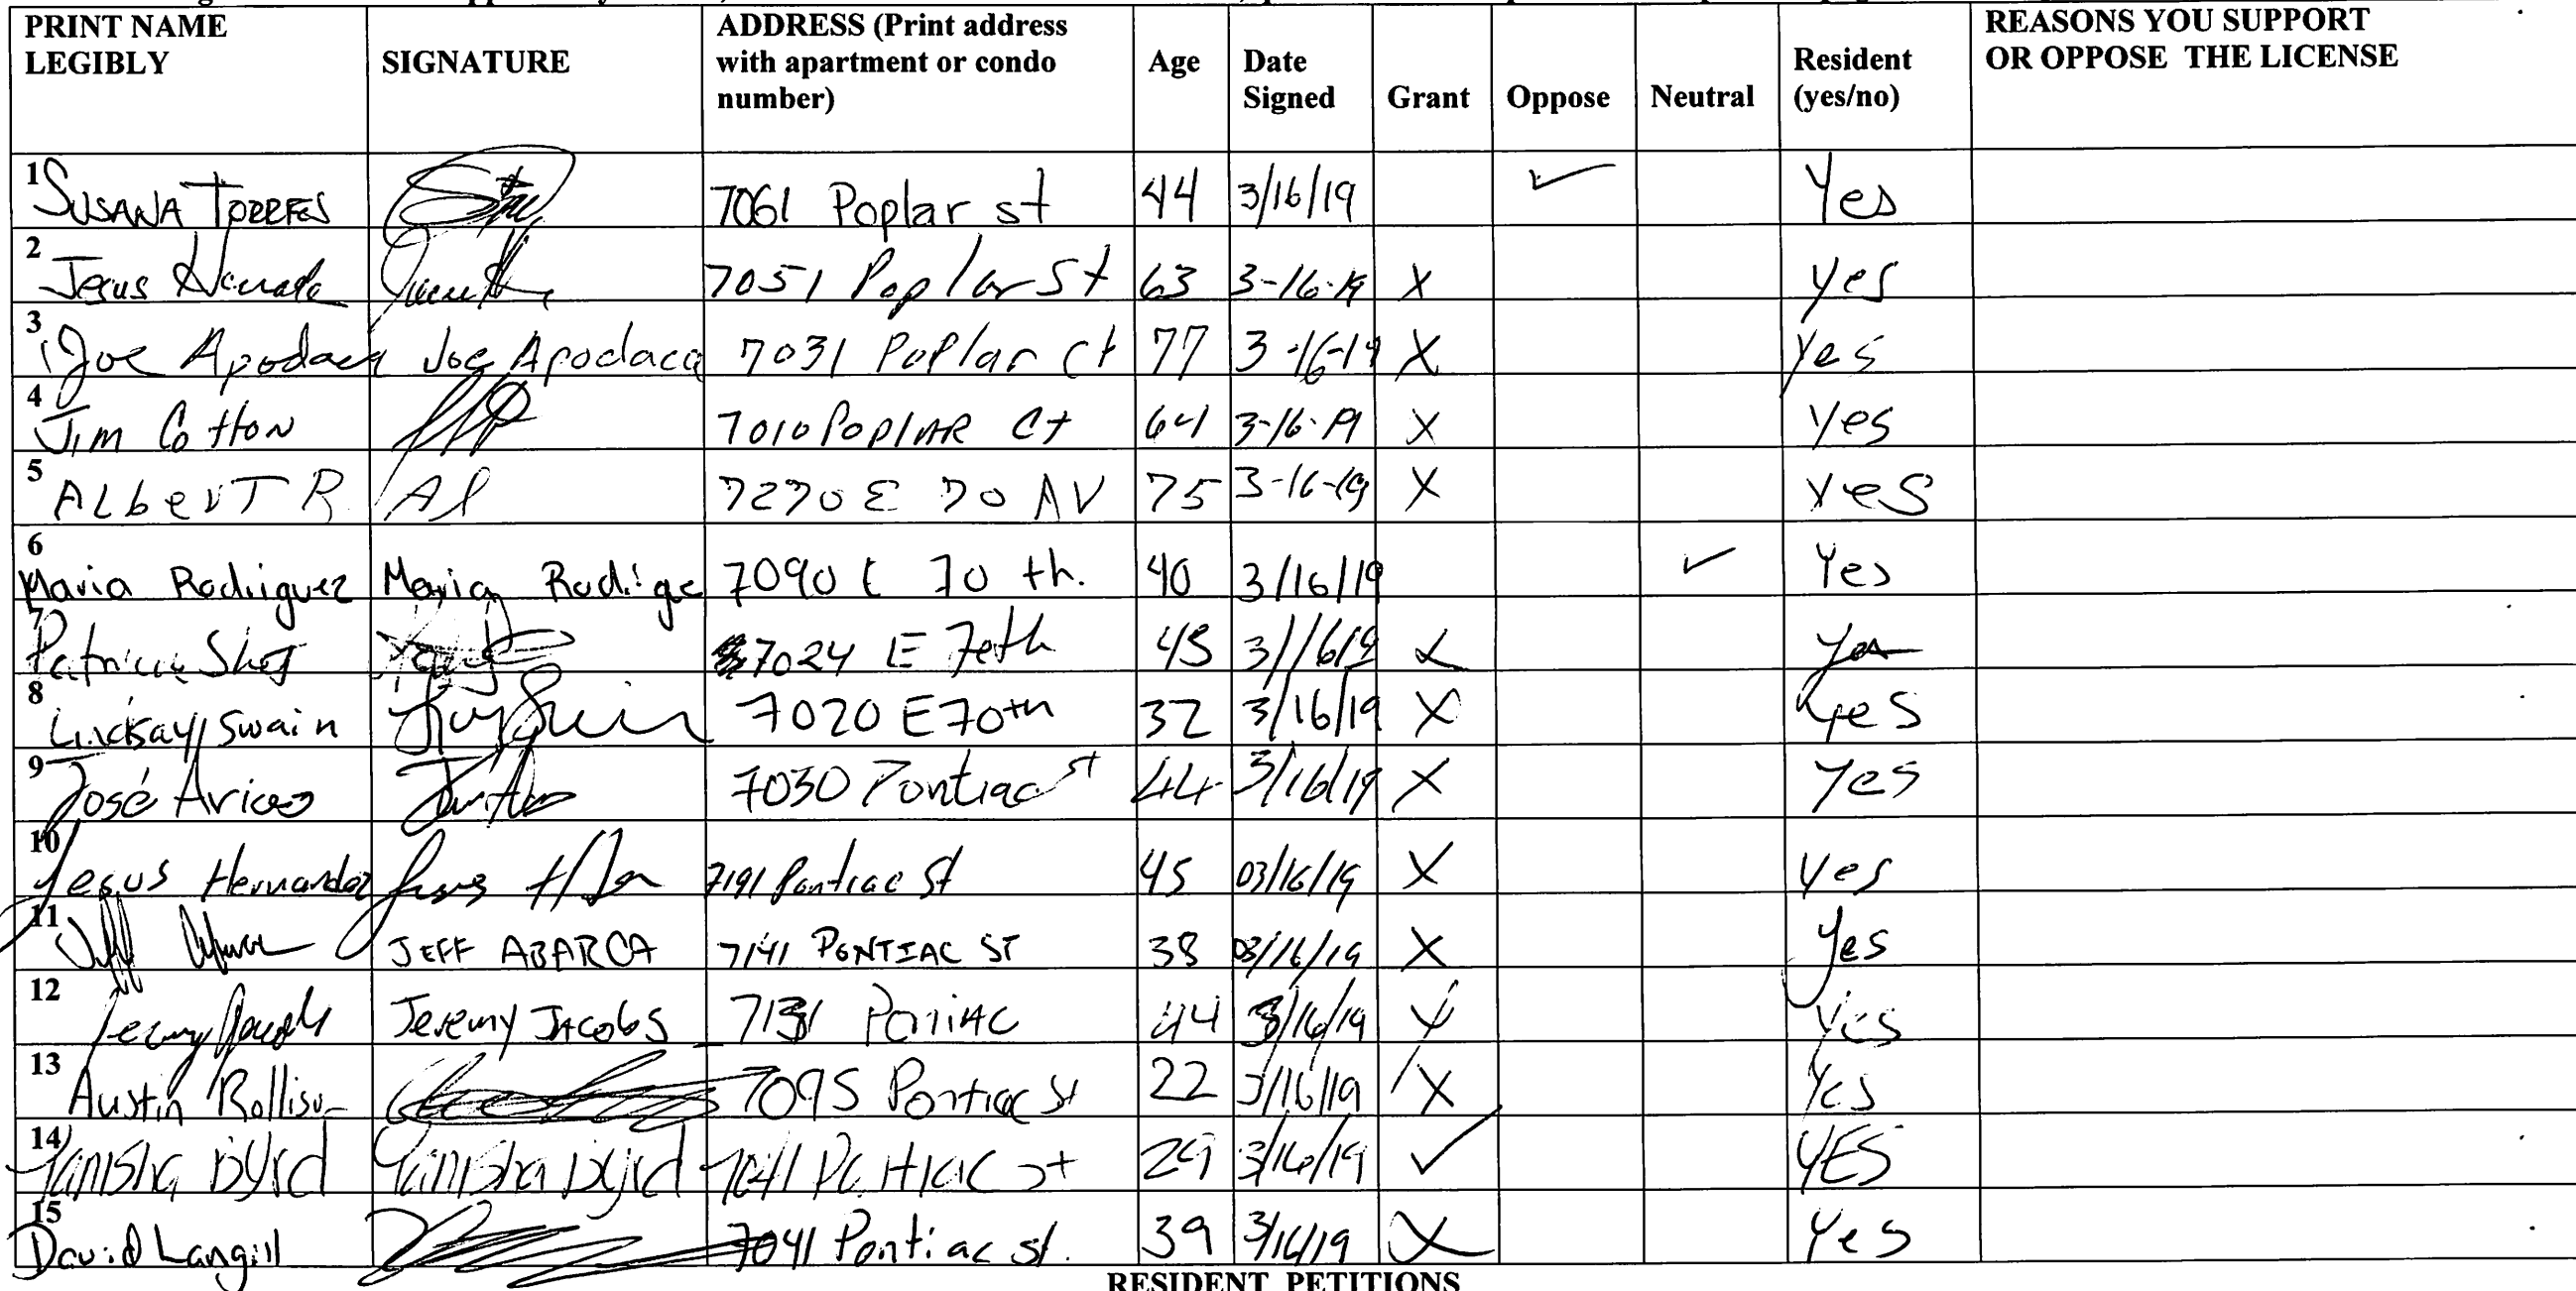 PRINT NAME LEGIBLY SIGNATURE ADDRESS (Print address with apartment or condo number) Age Date Signed Grant Oppose Neutral Resident (yes/no) REASONS YOU SUPPORT OR OPPOSE THE LICENSE
1 SUSANA TORRES 7061 Poplar st 44 3/16/19 ✓ Yes
2 Jesus 7051 Poplar St 63 3-16-19 X yes
3 Joe Apodaca Joe Apodaca 7031 Poplar Ct 77 3-16-19 X yes
4 Jim Cotton 7010 POPlAR Ct 64 3-16-19 X yes
5 ALberT R Al 7270 E 70 AV 75 3-16-19 X yes
6 Maria Rodriguez Maria 7090 E 70 th. 40 3/16/19 ✓ Yes
7 7024 E 70th 3/16/19 X Yes
8 Lindsay Swain 7020 E 70th 32 3/16/19 X yes
9 José 7030 Pontiac st 44 3/16/19 X Yes
10 Jesus Hernandez 7191 Pontiac St 45 03/16/19 X yes
11 JEFF ABARCA 7141 PONTIAC ST 38 03/16/19 X yes
12 Jeremy Jacobs 44 3/16/19 X yes
13 Austin 7095 Pontiac St 22 3/16/19 X Yes
14 Yanisha Byrd Yanisha Byrd 7041 Pontiac st 29 3/16/19 ✓ YES
15 David Langill 7041 Pontiac st. 39 3/16/19 X Yes
RESIDENT PETITIONS